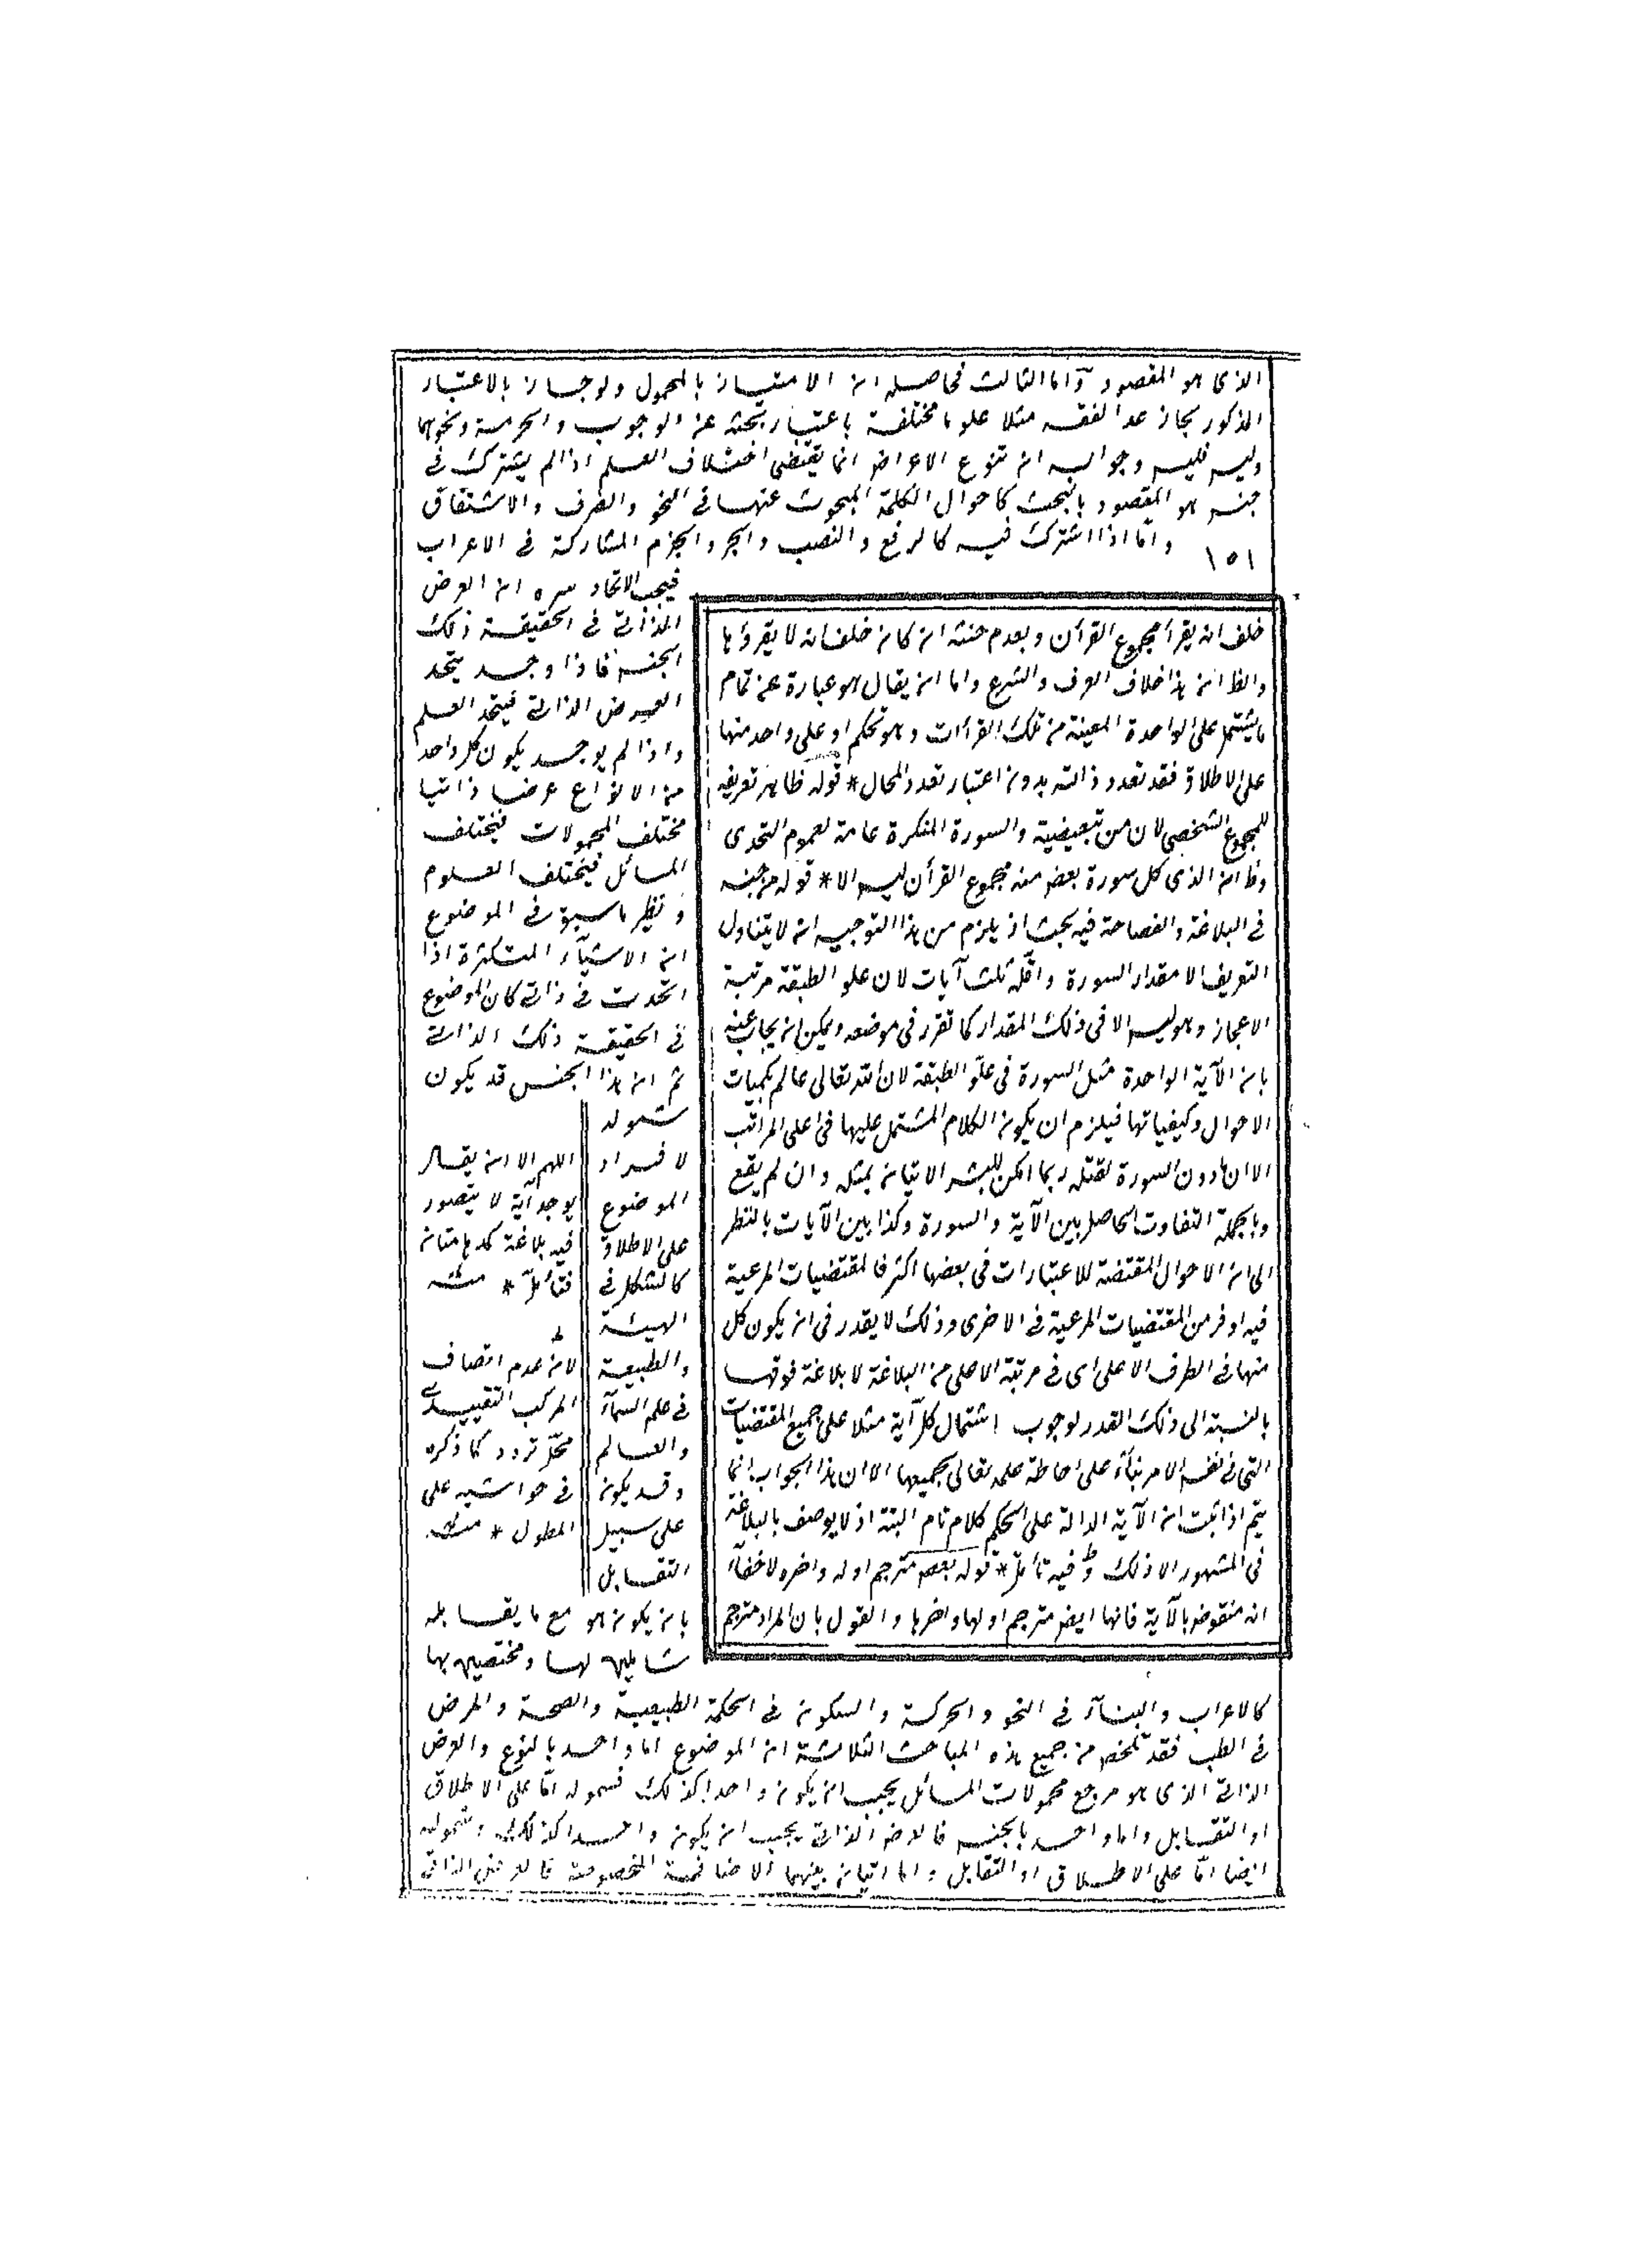 الذى هو المقصود وآما الثالث فحاصله ان الامتياز بالمحمول ولو جاز بالاعتبار
المذكور لجاز عد الفقه مثلا علوما مختلفة باعتبار بحثه عن الوجوب والحرمة ونحوهما
وليس فليس وجوابه ان تنوع الاعراض انما يقتضى اختلاف العلم اذا لم يشترك فى
جنس هو المقصود بالبحث كاحوال الكلمة المبحوث عنها فى النحو والصرف والاشتقاق
وامّا اذا اشترك فيه كالرفع والنصب والجر والجزم المشاركة فى الاعراب
١٥١
فيجب الاتحاد سره ان العرض
الذاتى فى الحقيقة ذلك
الجنس فاذا وجد يتحد
العرض الذاتى فيتحد العلم
واذا لم يوجد يكون كل واحد
من الانواع عرضا ذاتيا
مختلف المحمولات فيختلف
المسائل فيختلف العلوم
ونظير ما سبق فى الموضوع
ان الاشيآء المتكثرة اذا
اتحدت فى ذاتى كان الموضوع
فى الحقيقة ذلك الذاتى
ثم ان هذا الجنس قد يكون
شموله
لافراد
الموضوع
على الاطلاق
كالشكل فى
الهيئة
والطبيعة
فى علم السمآء
والعالم
وقد يكون
على سبيل
التقابل
بان يكون هو مع ما يقابله
شاملين لها ومختصين بها
كالاعراب والبنآء فى النحو والحركة والسكون فى الحكمة الطبيعية والصحة والمرض
فى الطب فقد تلخص من جميع هذه المباحث الثلاثة ان الموضوع اما واحد بالنوع والعرض
الذاتى الذى هو مرجع محمولات المسائل يجب ان يكون واحدا كذلك فشموله امّا على الاطلاق
او التقابل واما واحد بالجنس فالعرض الذاتى يجب ان يكون واحدا كذلك وشموله
ايضا امّا على الاطلاق او التقابل واما اتيان بينهما الاضافة المخصوصة فالعرض الذاتى
خلف انه يقرأ مجموع القرآن وبعدم حنثه ان كان خلف انه لا يقرؤها
والظ ان هذا خلاف العرف والشرع واما ان يقال هو عبارة عن تمام
ما يشتمل على الواحدة المعينة من تلك القرأات وهو تحكم او على واحد منها
على الاطلاق فقد تعدد ذاته بدون اعتبار تعدد المحال * قوله ظاهر تعريفه
للمجموع الشخصى لان من تبعيضية والسورة المنكرة عامة لعموم التحدى
وظ ان الذى كل سورة بعض منه مجموع القرآن ليس الا * قوله من جنسه
فى البلاغة والفصاحة فيه بحث اذ يلزم من هذا التوجيه ان لا يتناول
التعريف الا مقدار السورة واقلّه ثلث آيات لان علو الطبقة مرتبة
الاعجاز وهو ليس الا فى ذلك المقدار كما تقرر فى موضعه ويمكن ان يجاب عنه
بان الآية الواحدة مثل السورة فى علوّ الطبقة لان الله تعالى عالم بكميات
الاحوال وكيفياتها فيلزم ان يكون الكلام المشتمل عليها فى اعلى المراتب
الا ان ما دون السورة لقتله ربما امكن للبشر الاتيان بمثله وان لم يقع
وبالجملة التفاوت الحاصل بين الآية والسورة وكذا بين الآيات بالنظر
الى ان الاحوال المقتضة للاعتبارات فى بعضها اكثر فالمقتضيات المرعية
فيه اوفر من المقتضيات المرعية فى الاخرى وذلك لا يقدر فى ان يكون كل
منها فى الطرف الاعلى اى فى مرتبة الاعلى من البلاغة لا بلاغة فوقها
بالنسبة الى ذلك القدر لوجوب اشتمال كل آية مثلا على جميع المقتضيات
التى فى نفس الامر بنآء على احاطة علمه تعالى بجميعها الا ان هذا الجواب انما
يتم اذا ثبت ان الآية الدالة على الحكم كلام تام البتة اذ لا يوصف بالبلاغة
فى المشهور الا ذلك وفيه تأمل * قوله بعض مترجم اوله واخره لا خفآء
انه منقوض بالآية فانها ايضا مترجم اولها واخرها والقول بان المراد مترجم
اللهم الا ان يقال
يوجد آية لا يتصور
فيه بلاغة كمدهامتان
فتأمل * منه
لان عدم اتصاف
المركب التقييدى
محل تردد كما ذكره
فى حواشيه على
المطول * منه